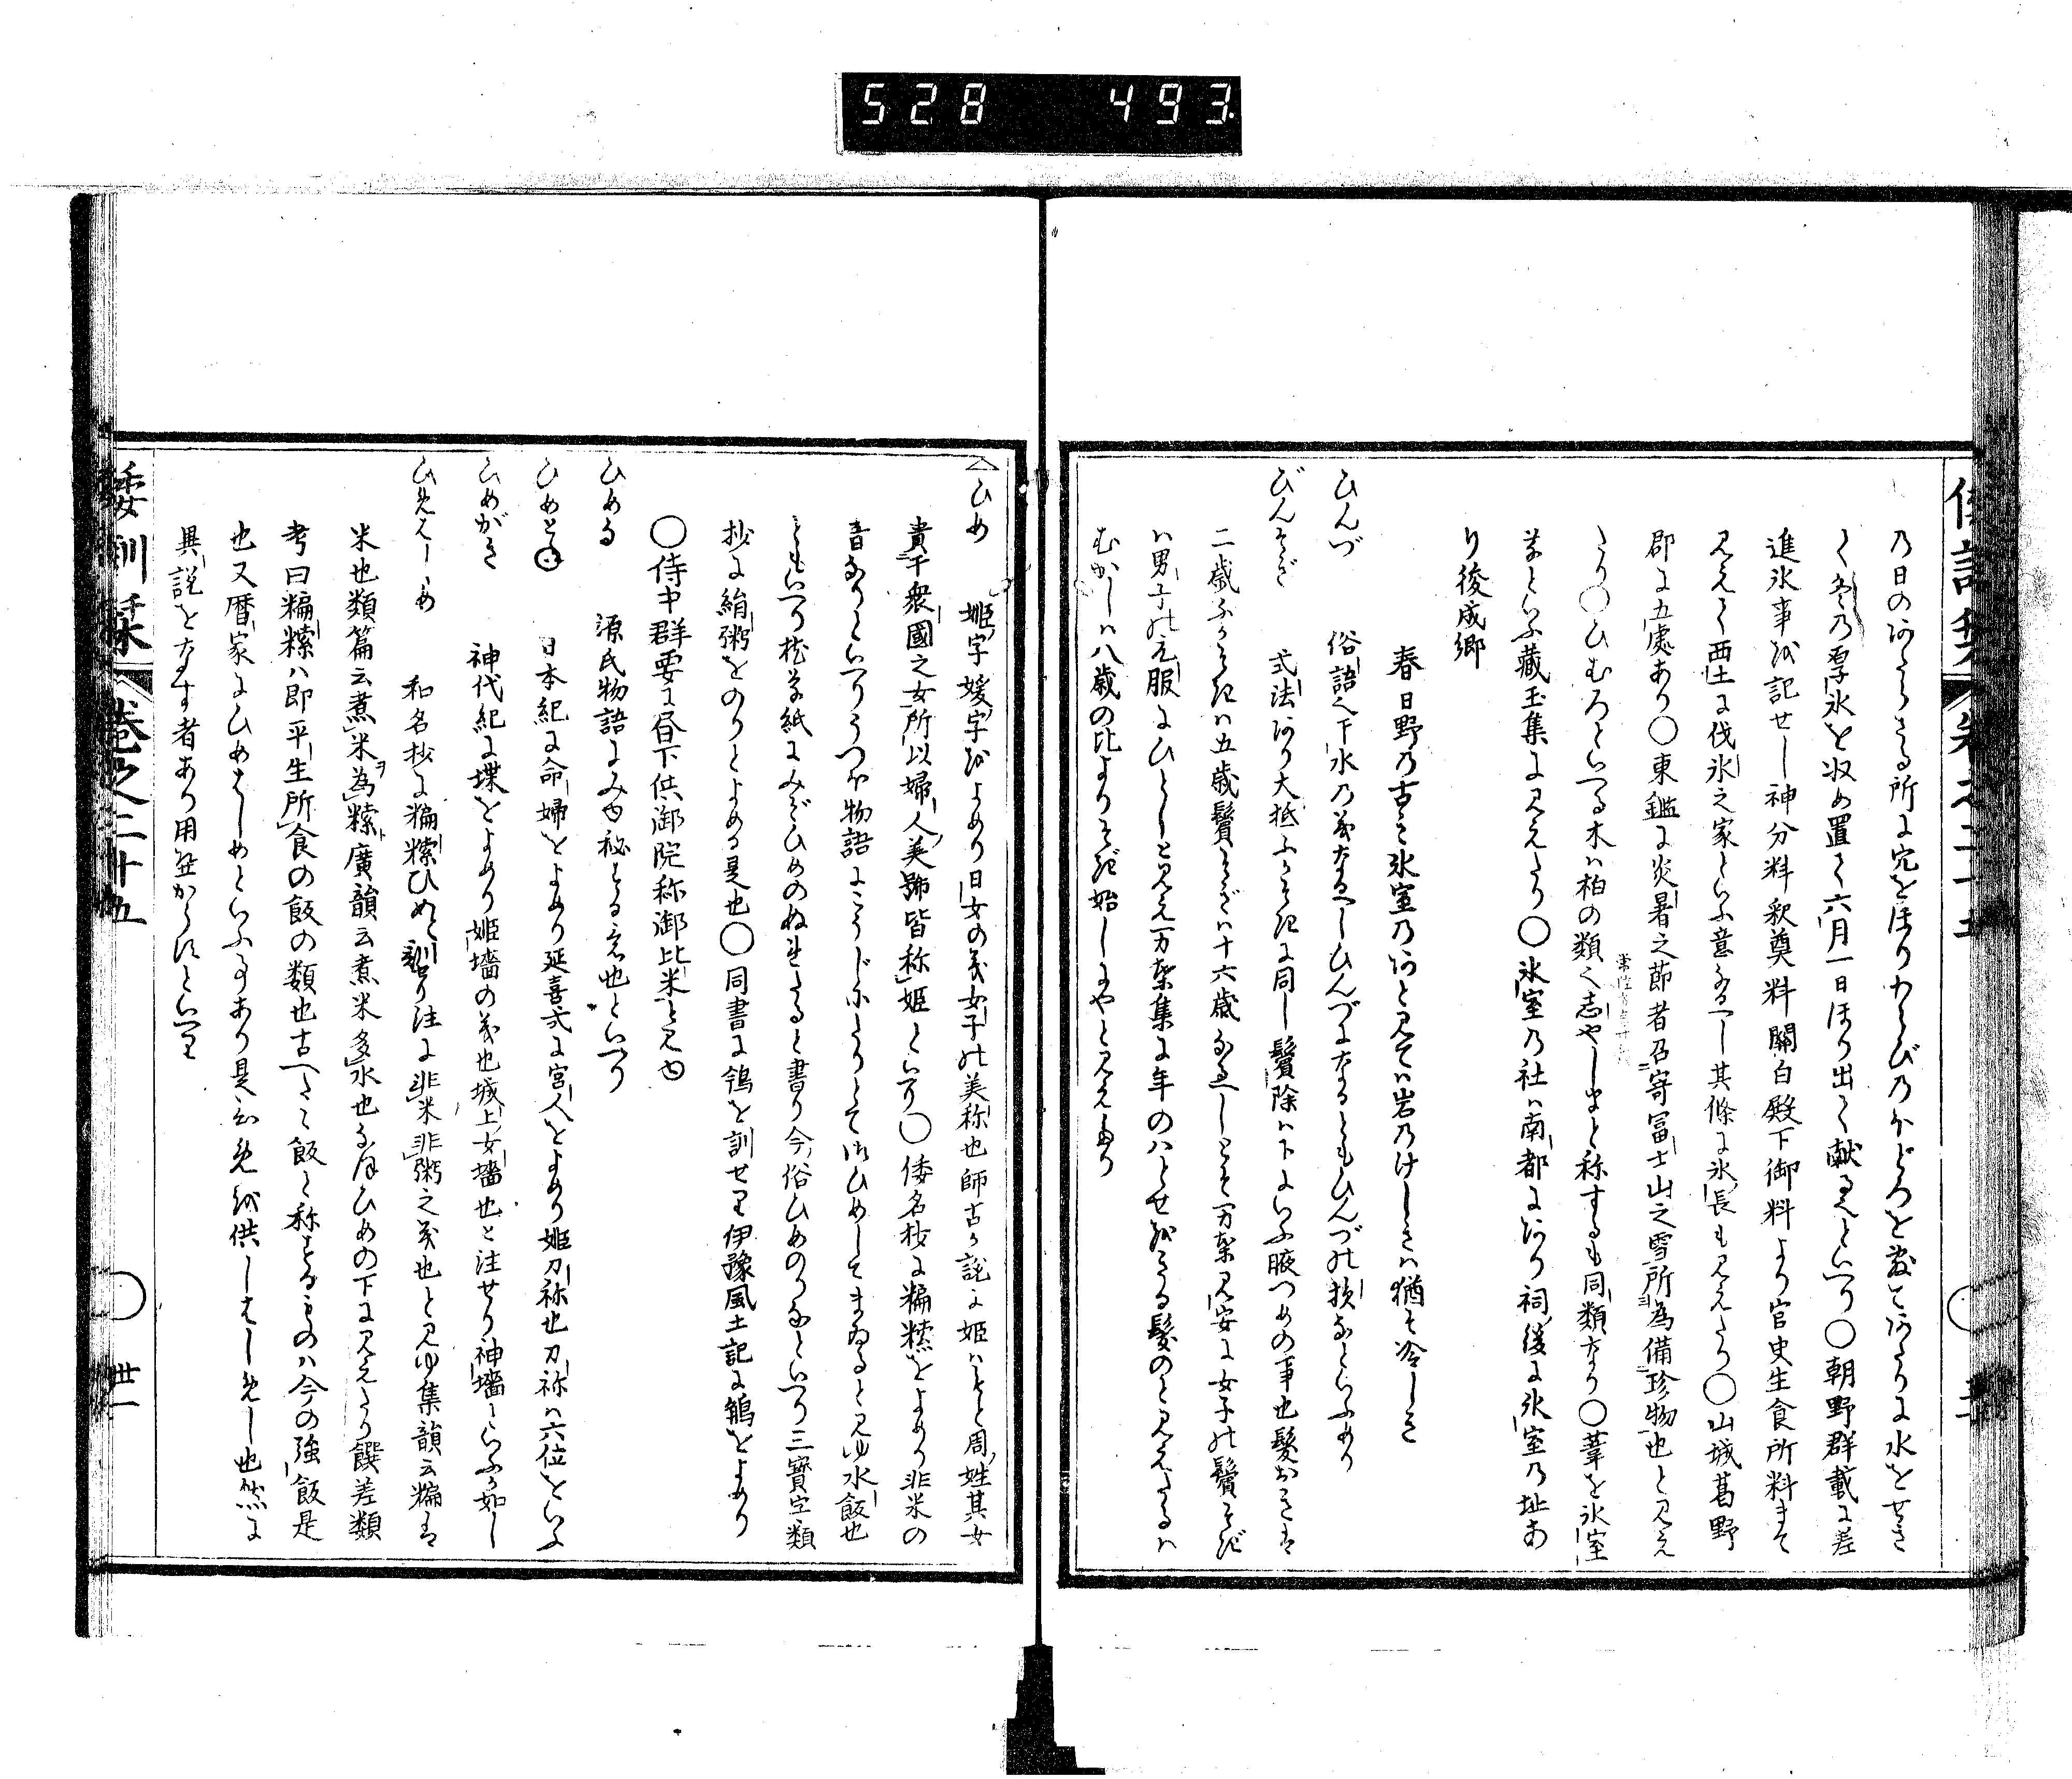 528 493
乃日のあたらさる所に穴をほりわらびのほどろを敷てあたりに水をせき
て冬乃厚氷を収め置て六月一日ほり出て献るといへり〇朝野群載に差
進氷事を記せし神分料釈奠料關白殿下御料より官史生食所料まて
見えて西土に伐氷之家といふ意なるへし其條に氷長も見えたり〇山城葛野
郡に五處あり〇東鑑に炎暑之節者召寄冨士山之雪所為備珍物也と見え
たり〇ひむろといへる木ハ柏の類く志やしまと称するも同類なり〇葦を氷室
草といふ藏玉集に見えたり〇氷室乃社ハ南都にあり祠後に氷室乃址あ
り後成卿
春日野乃古き氷室乃あと見てハ岩乃けしきハ猶そ冷しき
ひんづ 俗語へ下水乃義なるへしひんづになるともひんづの損なといふめり
びんそぎ 式法あり大抵ふかそきに同し鬢除ハ下にいふ腋つめの事也髪おきは
二歳ふかそきハ五歳鬢そぎハ十六歳なるへしとそ万葉見安に女子の鬢そぎ
ハ男子の元服にひとしと見え万葉集に年のハとせをきる髪のと見えたるハ
むかしハ八歳の比よりそぎ始しにやと見えたり
へひめ 姫字媛字をよめり日女の義女子の美称也師古か説に姫ハもと周姓其女
貴于衆國之女所以婦人美號皆称姫といへり〇倭名抄に糄𥻨をよめり非米の
音なりといへりうつほ物語にこうじにたりとて御ひめしてまゐると見ゆ水飯也
ともいへり枕草紙にみぞひめのぬれたると書り今俗ひめのりなといへり三寳字類
抄に絹粥をのりとよめる是也〇同書に鴾を訓せり伊豫風土記に鵤をよめり
〇侍中群要に昼下供御院称御比米と見ゆ
ひめる 源氏物語にみゆ秘する意也といへり
ひめとね 日本紀に命婦をよめり延喜式に宮人をよめり姫刀祢也刀祢ハ六位をいふ
ひめがき 神代紀に堞をよめり姫墻の義也城上女墻也と注せり神墻といふか如し
ひめはしめ 和名抄に糄𥻨ひめと訓り注に非米非粥之義也と見ゆ集韻云糄は
米也類篇云煮米為𥻨廣韻云煮米多水也なほひめの下に見えたり饌差類
考曰糄𥻨ハ即平生所食の飯の類也古へたゝ飯と称するものハ今の強飯是
也又暦家にひめはしめといふ事あり是もひめを供しはしめし也然に
異説をなす者あり用へからすといへり
倭訓栞 巻之二十五 〇 卅一